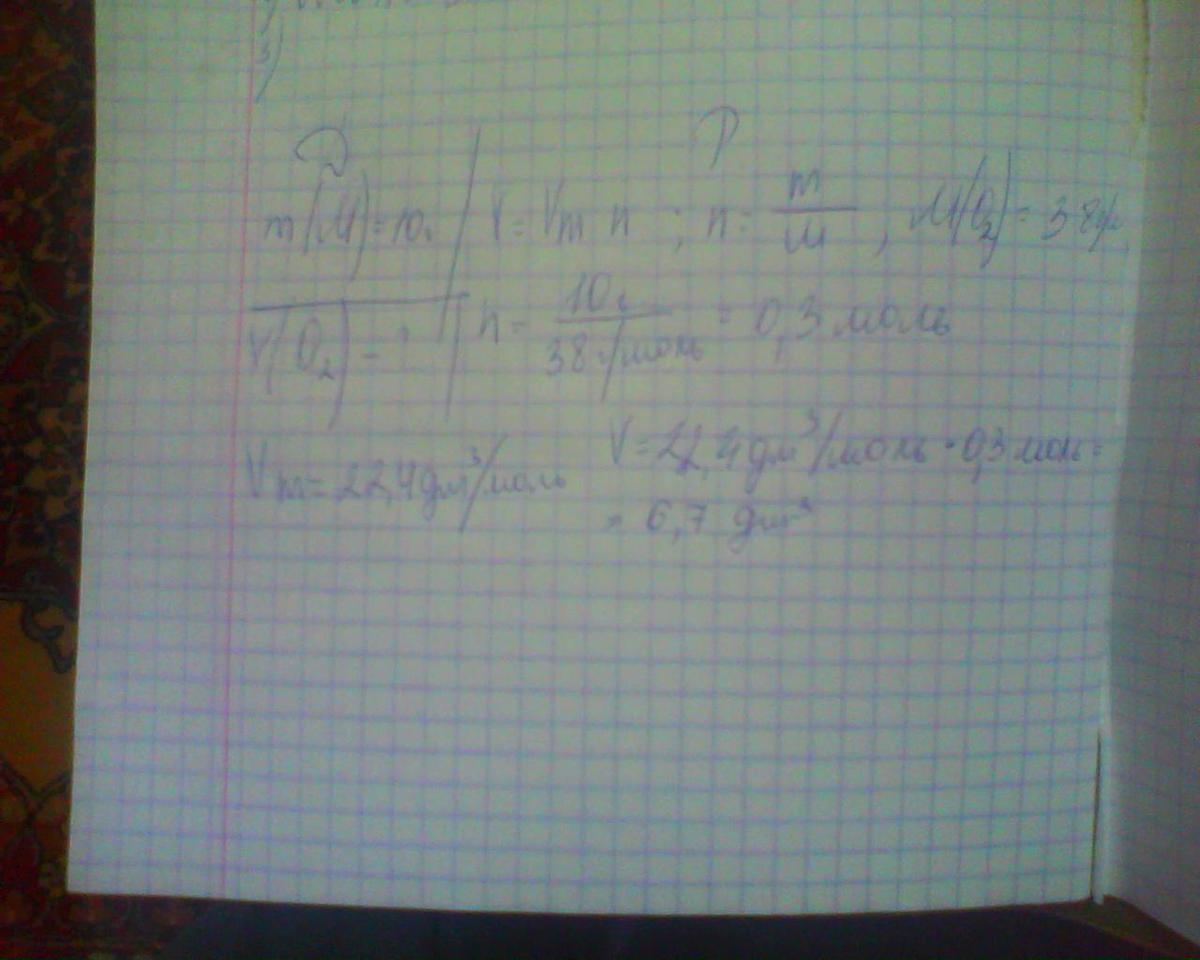 3)
Д Р
m(M)=10г V=Vm n ; n= m/M , M(O₂)=38г/
V(O₂)-? n= 10г/38г/моль = 0,3 моль
Vm=22,4дм³/моль V=22,4дм³/моль·0,3 моль=
= 6,7 дм³